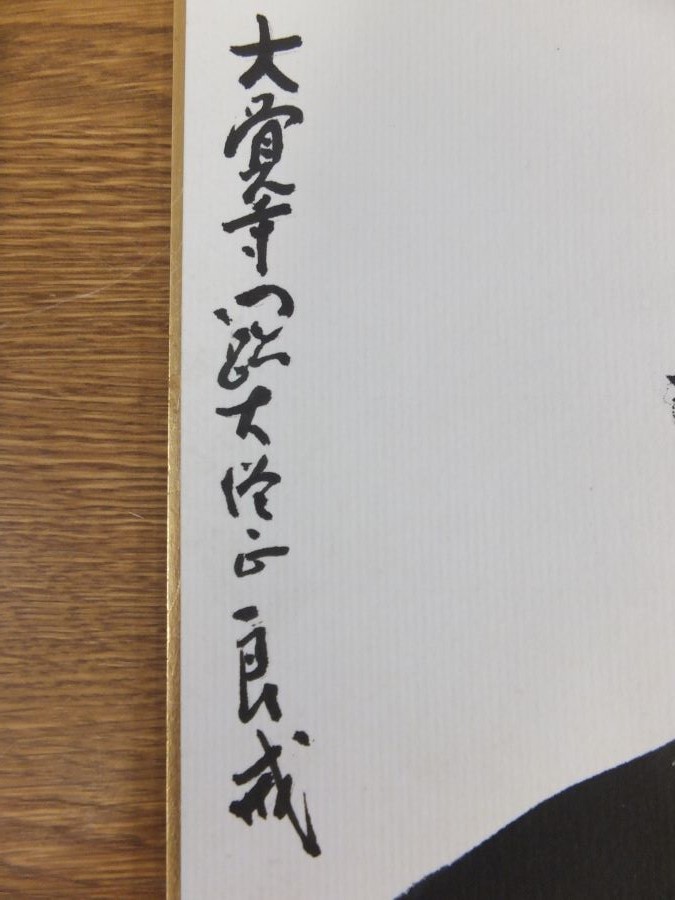 大覚寺門跡大僧正良戒